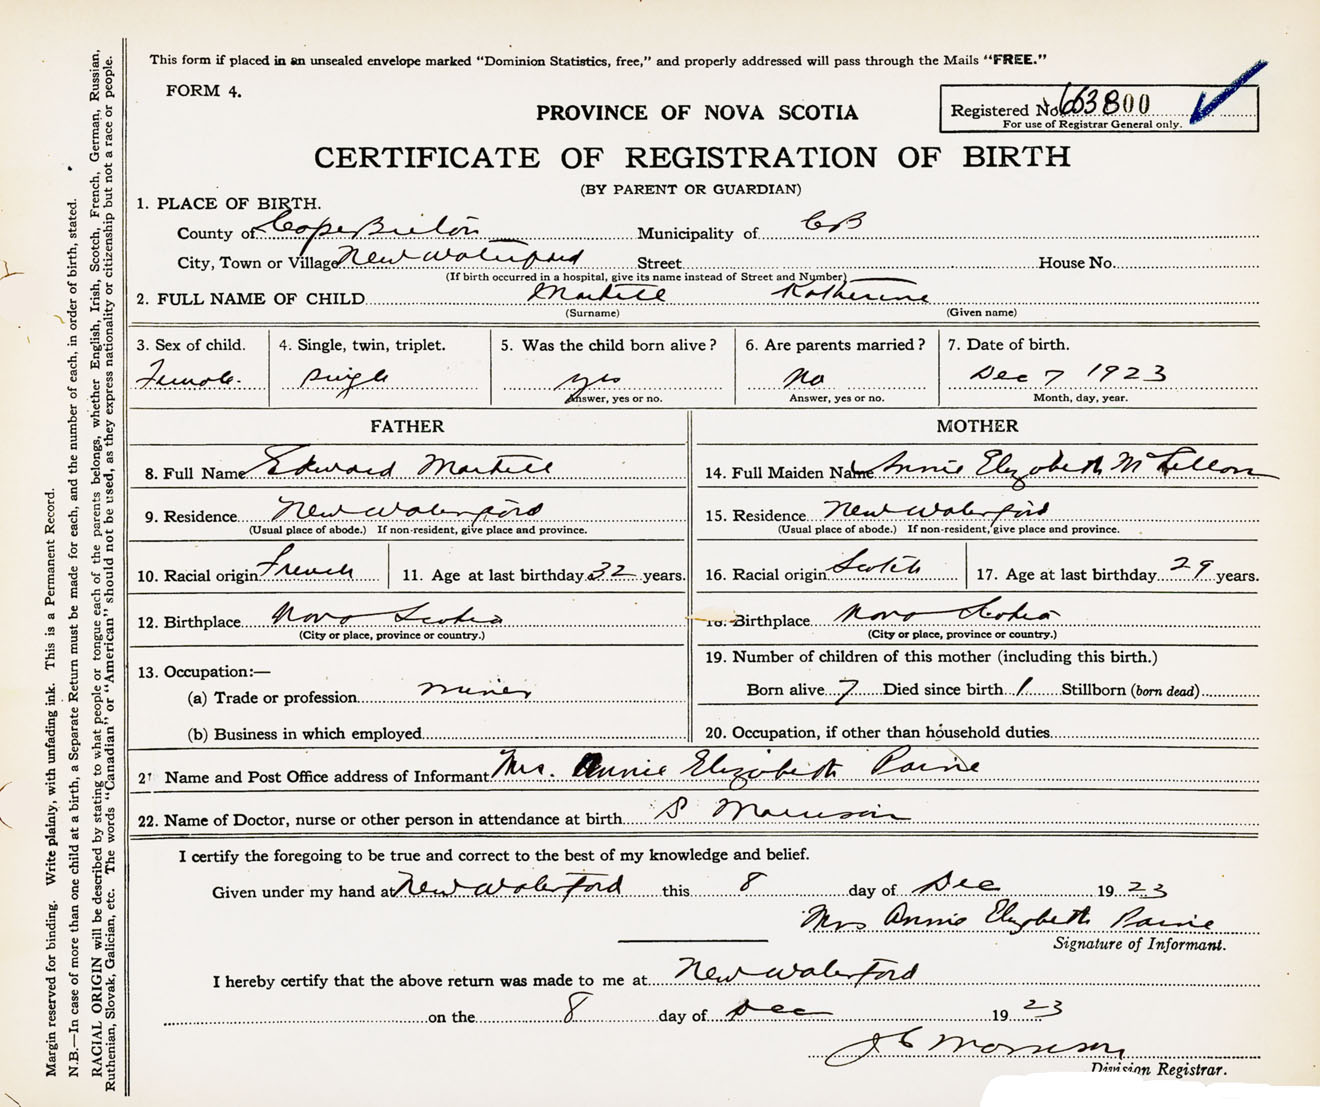 This form if placed in an unsealed envelope marked "Dominion Statistics, free," and properly addressed will pass through the Mails "FREE."
FORM 4.
PROVINCE OF NOVA SCOTIA
Registered No. 663800
For use of Registrar General only.
CERTIFICATE OF REGISTRATION OF BIRTH
(BY PARENT OR GUARDIAN)
1. PLACE OF BIRTH.
County of Cape Breton Municipality of CB
City, Town or Village New Waterford Street House No.
(If birth occurred in a hospital, give its name instead of Street and Number)
2. FULL NAME OF CHILD Martell Katherine
(Surname) (Given name)
3. Sex of child. 4. Single, twin, triplet. 5. Was the child born alive? 6. Are parents married? 7. Date of birth.
Female. Single yes No Dec 7 1923
Answer, yes or no. Answer, yes or no. Month, day, year.
FATHER MOTHER
8. Full Name Edward Martell 14. Full Maiden Name Annie Elizabeth McLellan
9. Residence New Waterford 15. Residence New Waterford
(Usual place of abode.) If non-resident, give place and province. (Usual place of abode.) If non-resident, give place and province.
10. Racial origin French 11. Age at last birthday 32 years. 16. Racial origin Scotch 17. Age at last birthday 29 years.
12. Birthplace Nova Scotia 18. Birthplace Nova Scotia
(City or place, province or country.) (City or place, province or country.)
19. Number of children of this mother (including this birth.)
13. Occupation:—
(a) Trade or profession miner Born alive 7 Died since birth 1 Stillborn (born dead)
(b) Business in which employed 20. Occupation, if other than household duties
21 Name and Post Office address of Informant Mrs. Annie Elizabeth Paine
22. Name of Doctor, nurse or other person in attendance at birth S Morrison
I certify the foregoing to be true and correct to the best of my knowledge and belief.
Given under my hand at New Waterford this 8 day of Dec 1923
Mrs Annie Elizabeth Paine
Signature of Informant.
I hereby certify that the above return was made to me at New Waterford
on the 8 day of Dec 1923
J C Morrison
Division Registrar.
Margin reserved for binding. Write plainly, with unfading ink. This is a Permanent Record.
N.B.—In case of more than one child at a birth, a Separate Return must be made for each, and the number of each, in order of birth, stated.
RACIAL ORIGIN will be described by stating to what people or tongue each of the parents belongs, whether English, Irish, Scotch, French, German, Russian,
Ruthenian, Slovak, Galician, etc. The words "Canadian" or "American" should not be used, as they express nationality or citizenship but not a race or people.